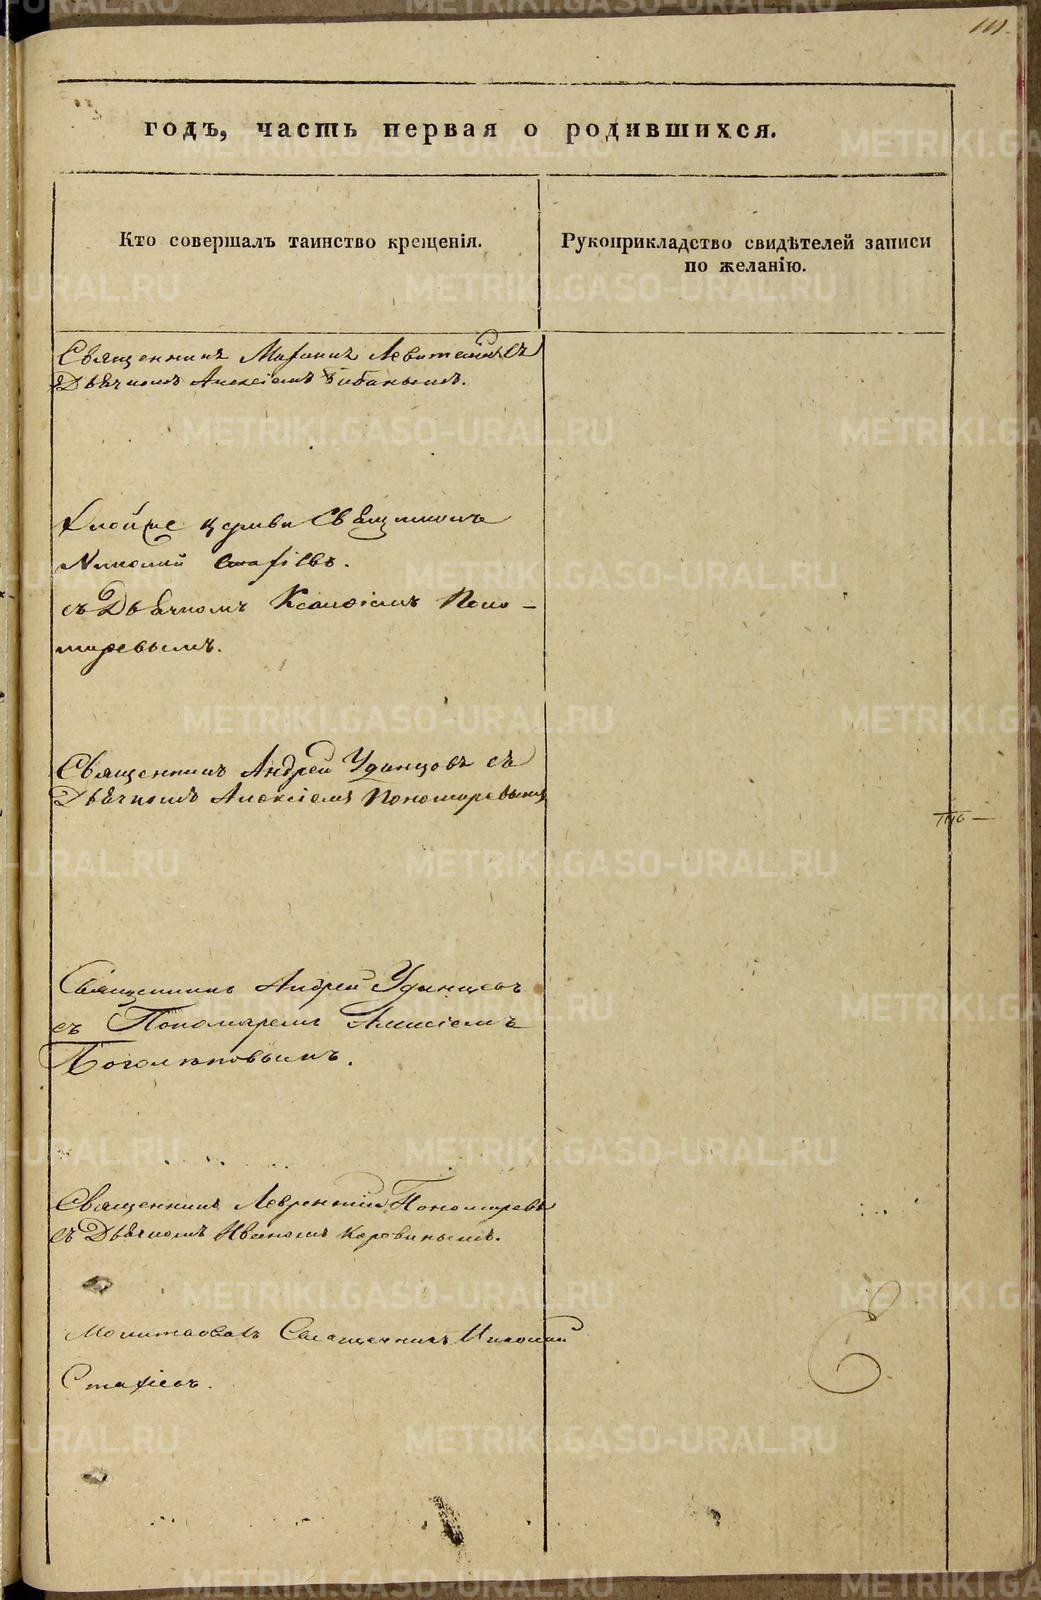 111.
годъ, часть первая о родившихся.
Кто совершалъ таинство крещенія.
Рукоприкладство свидѣтелей записи
по желанію.
Священникъ съ
Дьячкомъ Алексіемъ
церкви Священникъ
Николай Стафіевъ.
съ Дьячкомъ Поно-
маревымъ.
Священникъ Андрей Удинцовъ съ
Дьячкомъ Алексіемъ Пономаревымъ
Священникъ Андрей Удинцевъ
съ Пономаремъ Алексіемъ
Священникъ Лаврентій Пономаревъ
съ Дьячкомъ Иваномъ Коровинымъ.
Молитвовалъ Священникъ Николай
Стафіевъ.
METRIKI.GASO-URAL.RU